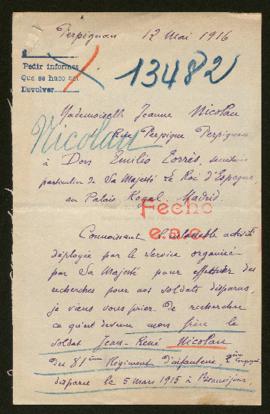 Perpignan 12 Mai 1916
Pedir informes
Que se haga así
Devolver
13482
Mademoiselle Jeanne Nicolau
Nicolau
Rue Perpignan
à Don Emilio Torrès, secrétaire
particulier de Sa Majesté Le Roi d'Espagne
au Palais Royal. Madrid
Fecho
Connaissant l'inlassable activité
déployée par le service organisé
par Sa Majesté pour effectuer des
recherches pour nos soldats disparus,
je viens vous prier de rechercher
ce qu'est devenu mon frère le
soldat Jean-René Nicolau
du 81ème Régiment d'infanterie,
disparu le 5 mars 1915 à Beauséjour